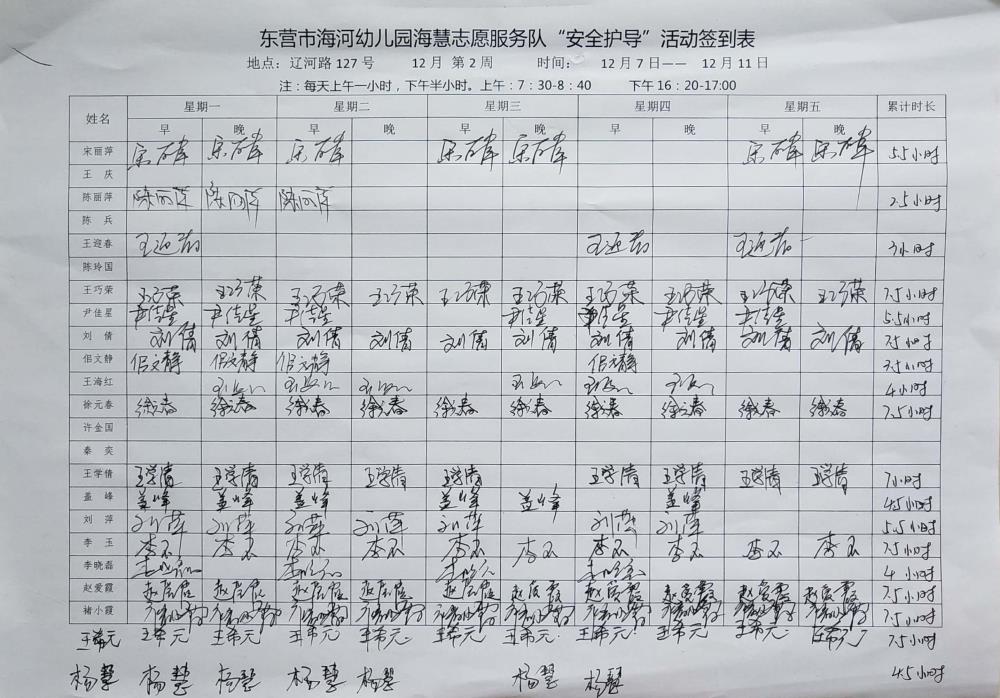 东营市海河幼儿园海慧志愿服务队“安全护导”活动签到表
地点：辽河路 127 号 12 月 第 2 周 时间： 12 月 7 日—— 12 月 11 日
注：每天上午一小时，下午半小时。上午：7：30-8：40 下午 16：20-17:00
姓名 星期一 星期二 星期三 星期四 星期五 累计时长
早 晚 早 晚 早 晚 早 晚 早 晚
宋丽萍 5.5小时
王 庆
陈丽萍 陈丽萍 陈丽萍 陈丽萍 2.5小时
陈 兵
王迎春 王迎春 王迎春 王迎春 3小时
陈玲国
王巧荣 王巧荣 王巧荣 王巧荣 王巧荣 王巧荣 王巧荣 王巧荣 王巧荣 王巧荣 王巧荣 7.5小时
尹佳星 尹佳星 尹佳星 尹佳星 尹佳星 尹佳星 尹佳星 尹佳星 5.5小时
刘 倩 刘倩 刘倩 刘倩 刘倩 刘倩 刘倩 刘倩 刘倩 刘倩 刘倩 7.5小时
佀文静 佀文静 佀文静 佀文静 佀文静 3.5小时
王海红 4小时
徐元春 徐元春 徐元春 徐元春 徐元春 徐元春 徐元春 徐元春 徐元春 徐元春 徐元春 7.5小时
许金国
秦 奕
王学倩 王学倩 王学倩 王学倩 王学倩 王学倩 王学倩 王学倩 王学倩 王学倩 7小时
盖 峰 盖峰 盖峰 盖峰 盖峰 盖峰 盖峰 4.5小时
刘 萍 刘萍 刘萍 刘萍 刘萍 刘萍 刘萍 5.5小时
李 玉 李玉 李玉 李玉 李玉 李玉 李玉 李玉 李玉 李玉 李玉 7.5小时
李晓磊 4小时
赵爱霞 赵爱霞 赵爱霞 赵爱霞 赵爱霞 赵爱霞 赵爱霞 赵爱霞 赵爱霞 赵爱霞 赵爱霞 7.5小时
褚小霞 7.5小时
王希元 王希元 王希元 王希元 王希元 王希元 王希元 王希元 王希元 王希元 王希元 7.5小时
杨慧 杨慧 杨慧 杨慧 杨慧 杨慧 杨慧 4.5小时